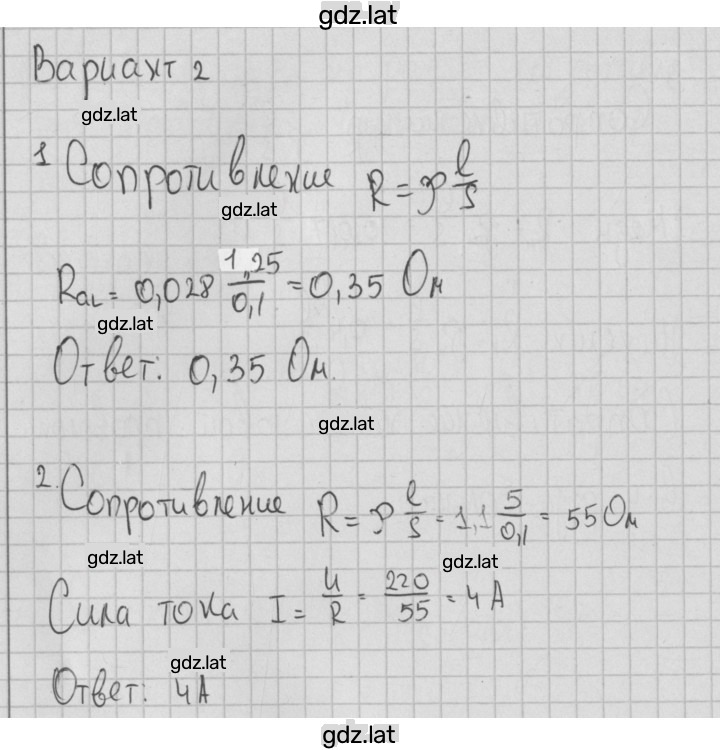 gdz.lat
Вариант 2
gdz.lat
1 Сопротивление R = ρ l/S
gdz.lat
R_AL = 0,028 1,25/0,1 = 0,35 Ом
gdz.lat
Ответ: 0,35 Ом.
gdz.lat
2. Сопротивление R = ρ l/S = 1,1 5/0,1 = 55 Ом
gdz.lat
gdz.lat
Сила тока I = U/R = 220/55 = 4 А
gdz.lat
Ответ: 4 А
gdz.lat